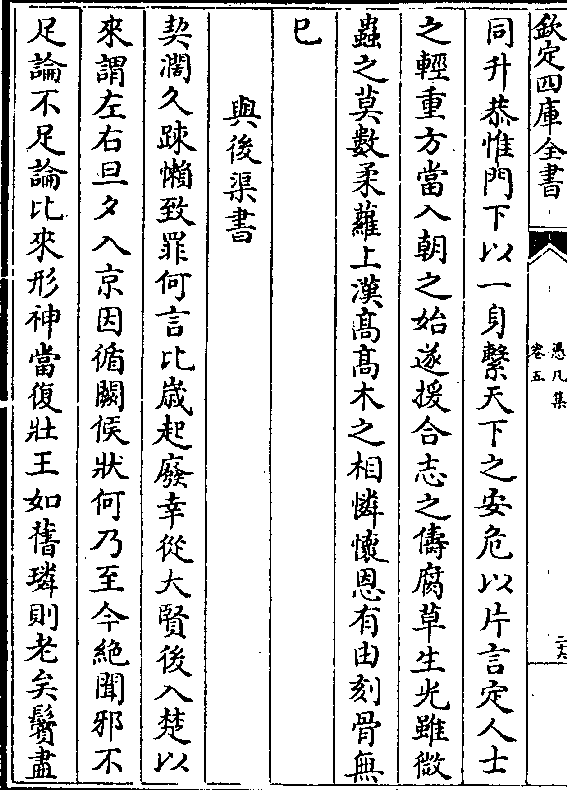 欽定四庫全書
憑几集
卷五
同升恭惟門下以一身繫天下之安危以片言定人士
之輕重方當入朝之始遂援合志之儔腐草生光雖微
蟲之莫數柔蘿上漢髙髙木之相憐懷恩有由刻骨無
巳
與後渠書
契濶久踈懶致罪何言比嵗起廢幸從大賢後入楚以
來謂左右旦夕入京因循闕候狀何乃至今絶聞邪不
足論不足論比來形神當復壯王如舊璘則老矣鬢盡